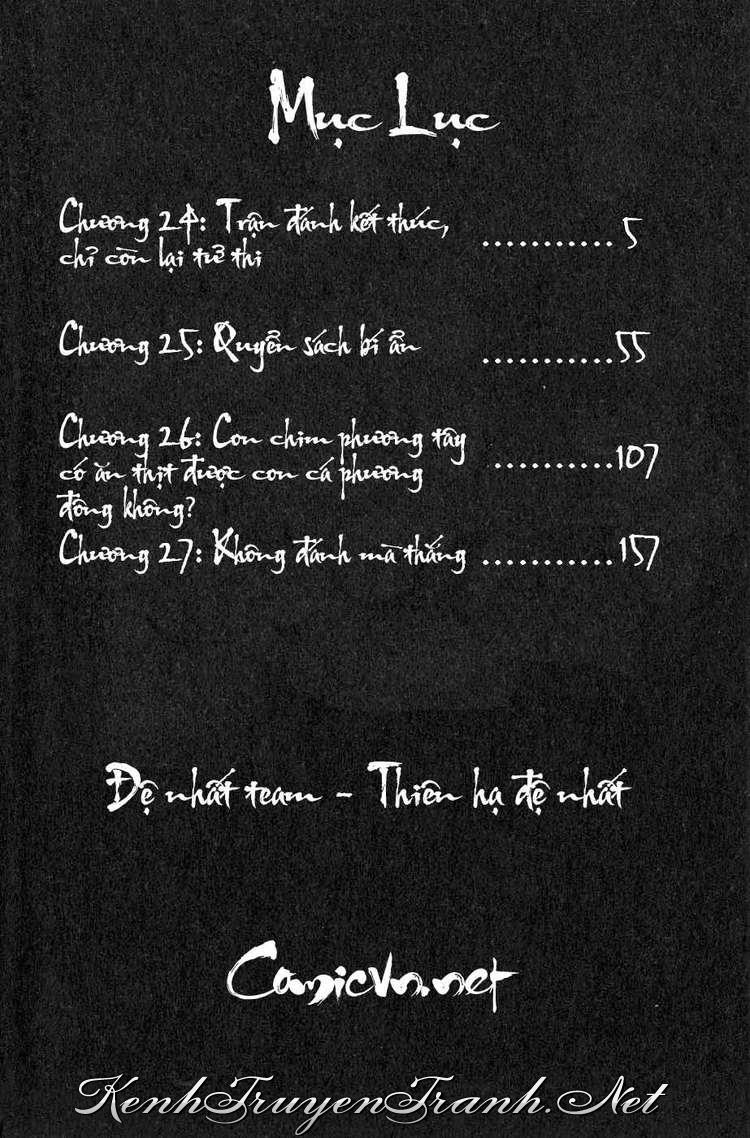 Mục Lục
Chương 24: Trận đánh kết thúc, ........... 5
chỉ còn lại tử thi
Chương 25: Quyển sách bí ẩn ........... 55
Chương 26: Con chim phương tây
có ăn thịt được con cá phương .......... 107
đông không?
Chương 27: Không đánh mà thắng ........... 157
Đệ nhất team - Thiên hạ đệ nhất
Comicvn.net
KenhTruyenTranh.Net